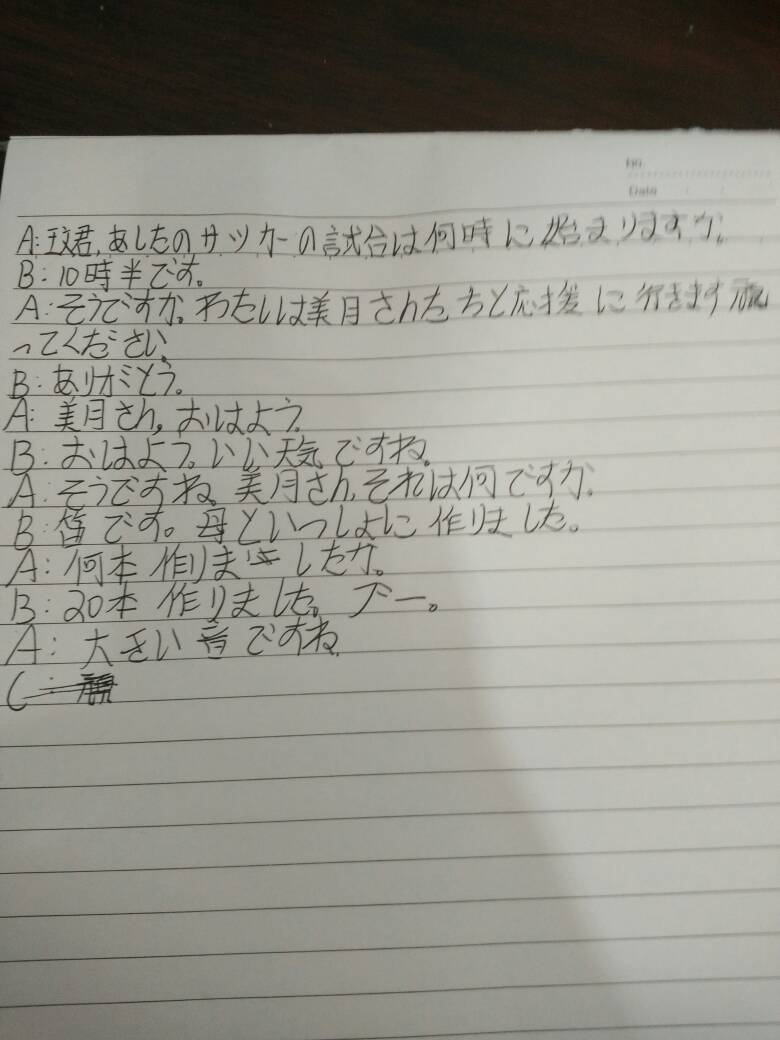 No.
Date
A:玟君,あしたのサッカーの試合は何時に始まりますか。
B:10時半です。
A:そうですか。わたしは美月さんたちと応援に行きます
ってください。
B:ありがとう。
A:美月さん,おはよう。
B:おはよう。いい天気ですね。
A:そうですね。美月さん,それは何ですか。
B:笛です。母といっしょに作りました。
A:何本作りましたか。
B:20本作りました。ブー。
A:大きい音ですね。
C: